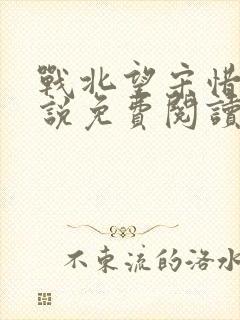 戰北望宋惜
說免費閱讀
不東流的洛水